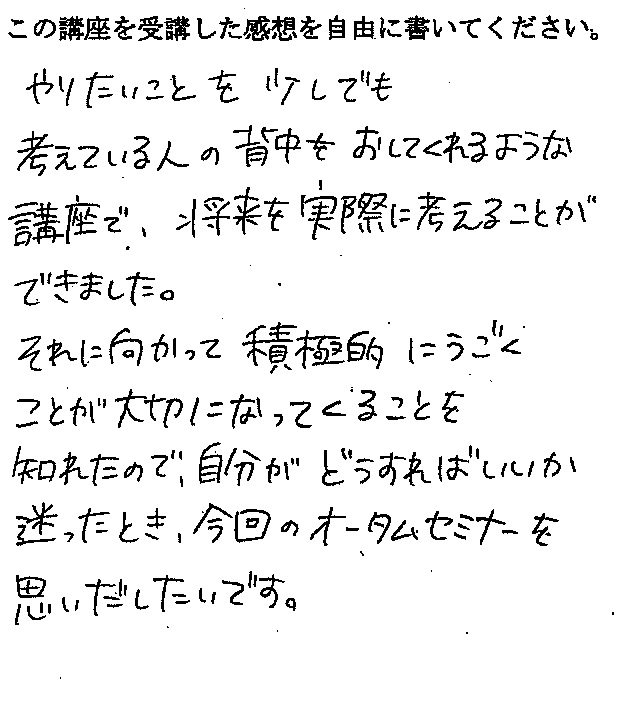 この講座を受講した感想を自由に書いてください。
やりたいことを少しでも
考えている人の背中をおしてくれるような
講座で、将来を実際に考えることが
できました。
それに向かって積極的にうごく
ことが大切になってくることを
知れたので、自分がどうすればいいか
迷ったとき、今回のオータムセミナーを
思いだしたいです。